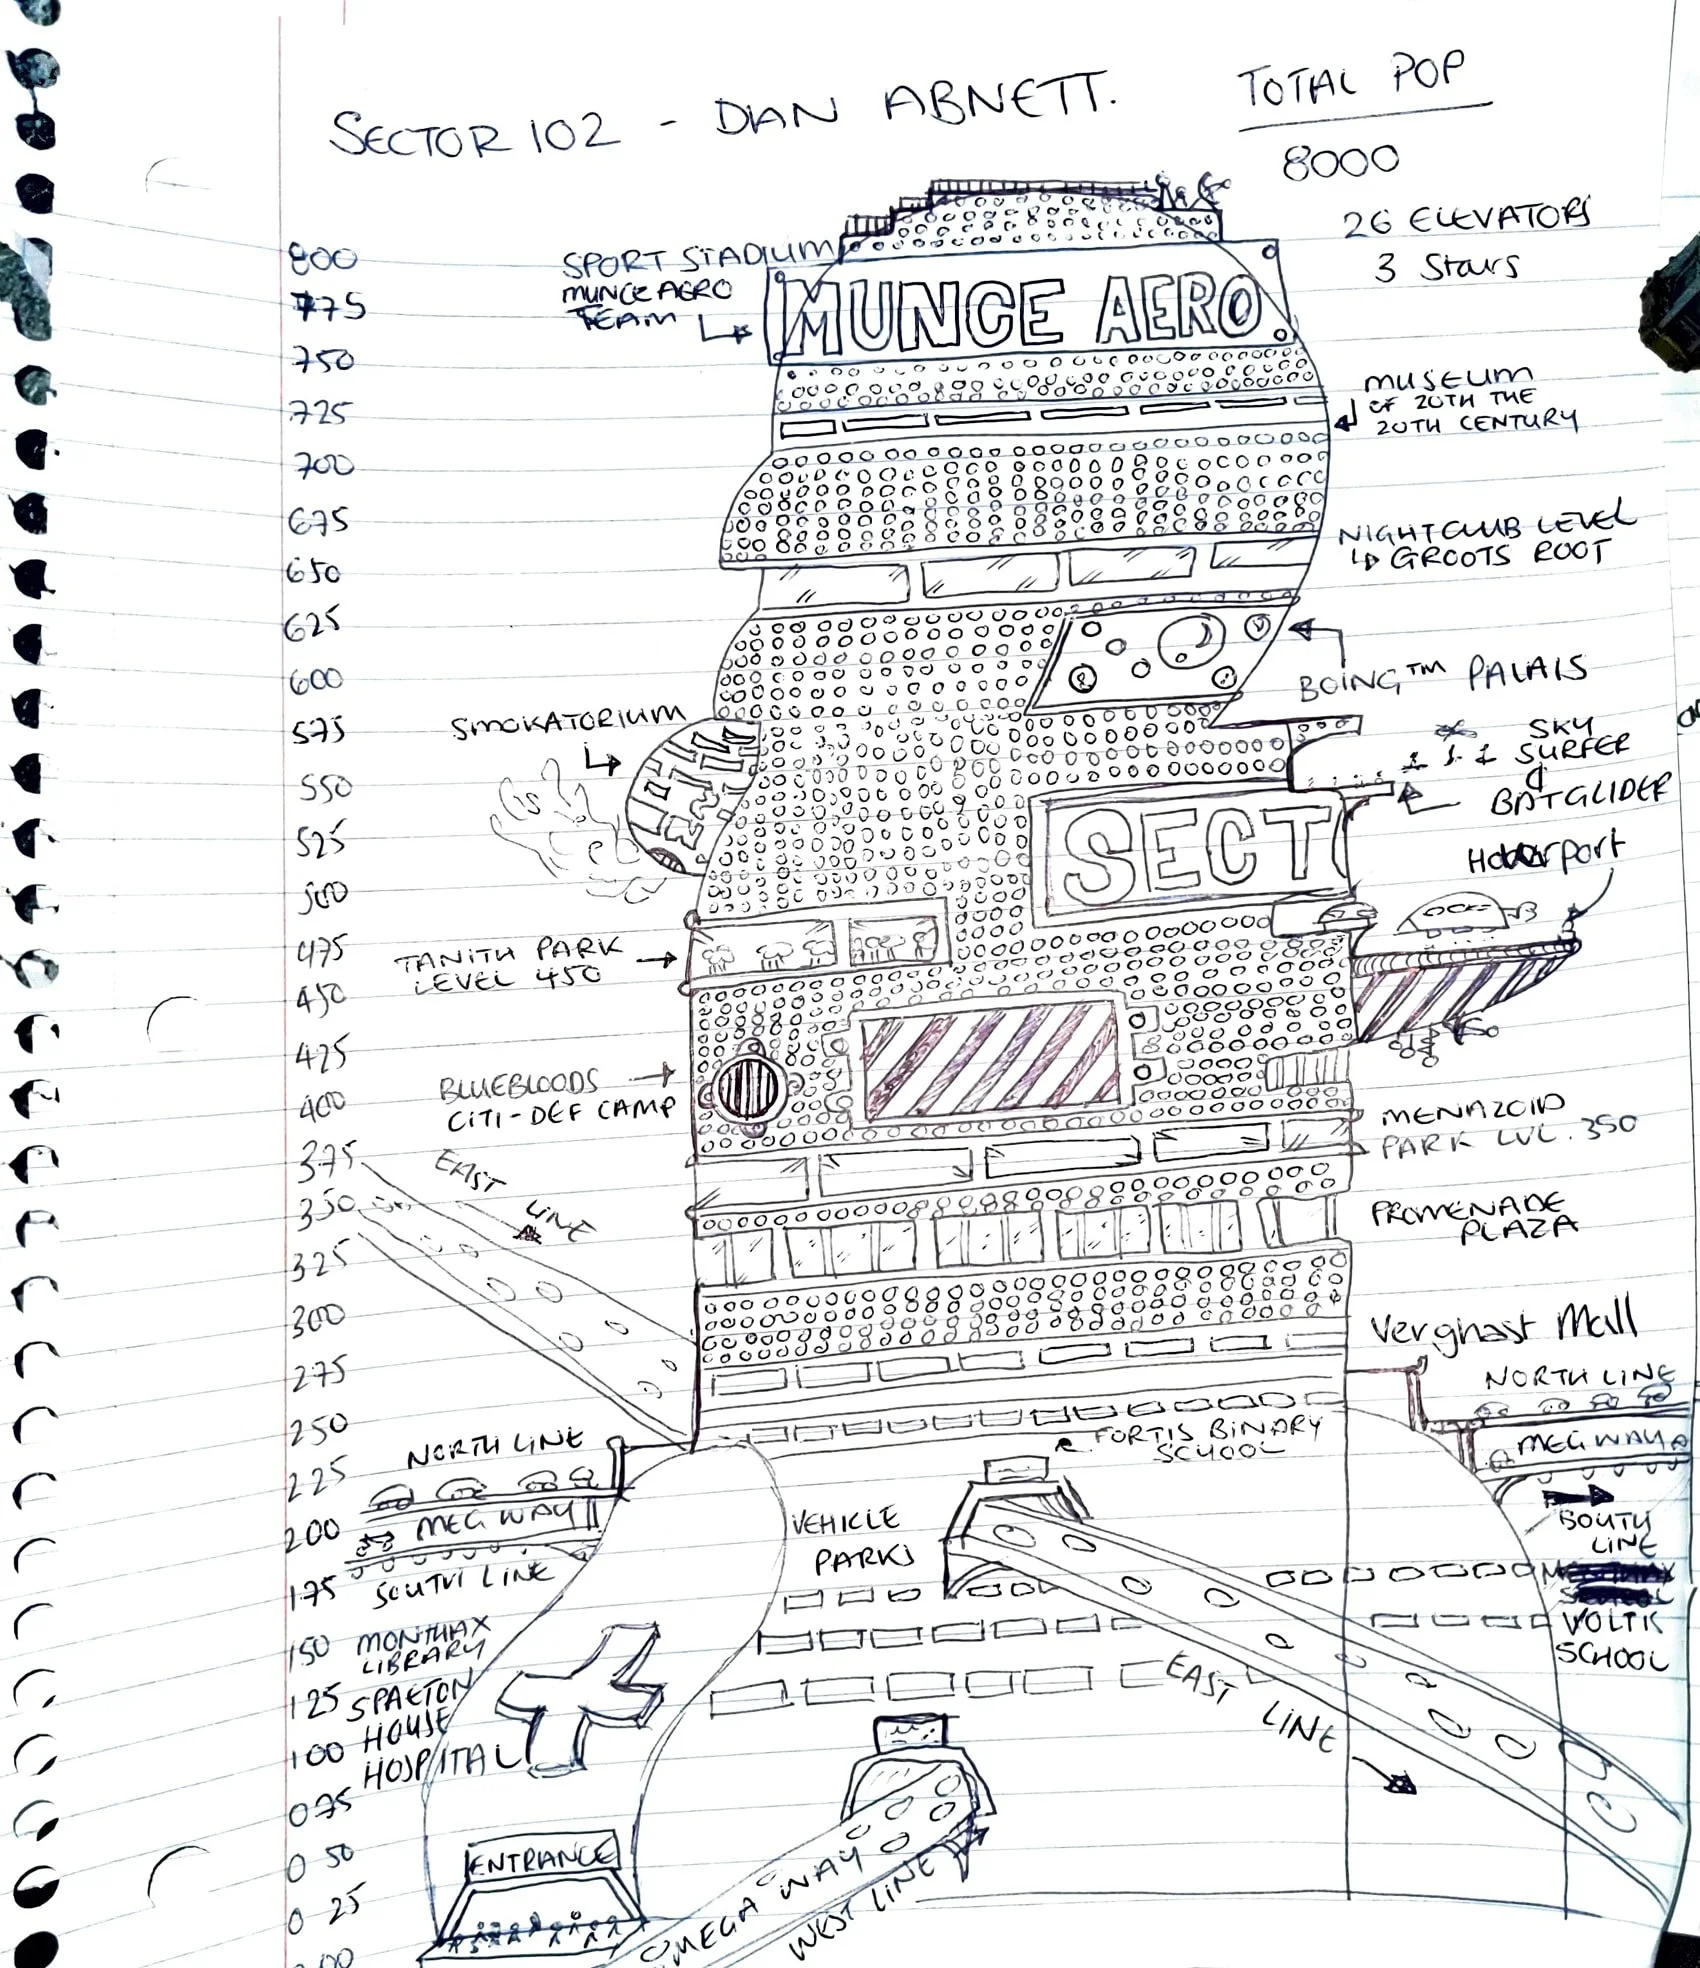 SECTOR 102 - DAN ABNETT.
TOTAL POP
8000
26 ELEVATORS
3 Stairs
800
775
750
725
700
675
650
625
600
575
550
525
500
475
450
425
400
375
350
325
300
275
250
225
200
175
150
125
100
075
050
025
SPORT STADIUM
MUNCE AERO
TEAM
MUNCE AERO
MUSEUM
OF 20TH THE
20TH CENTURY
NIGHTCLUB LEVEL
GROOTS ROOT
BOING™ PALAIS
SMOKATORIUM
SKY
SURFER
&
BATGLIDER
SECT
Hoverport
TANITH PARK
LEVEL 450
BLUEBLOODS
CITI-DEF CAMP
MENAZOID
PARK LVL. 350
EAST
LINE
PROMENADE
PLAZA
Verghast Mall
NORTH LINE
MEGWAY
SOUTH
LINE
FORTIS BINARY
SCHOOL
NORTH LINE
MEGWAY
SOUTH LINE
VEHICLE
PARKS
VOLTK
SCHOOL
MONTHAX
LIBRARY
SPAETON
HOUSE
HOSPITAL
EAST
LINE
ENTRANCE
OMEGA WAY
WEST LINE